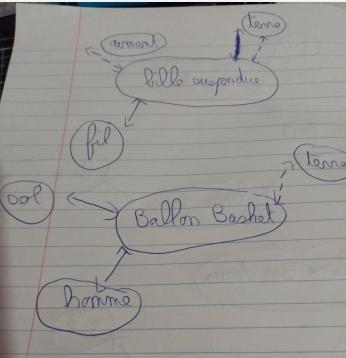 terre
aimant
bille suspendue
fil
terre
sol
Ballon Basket
homme